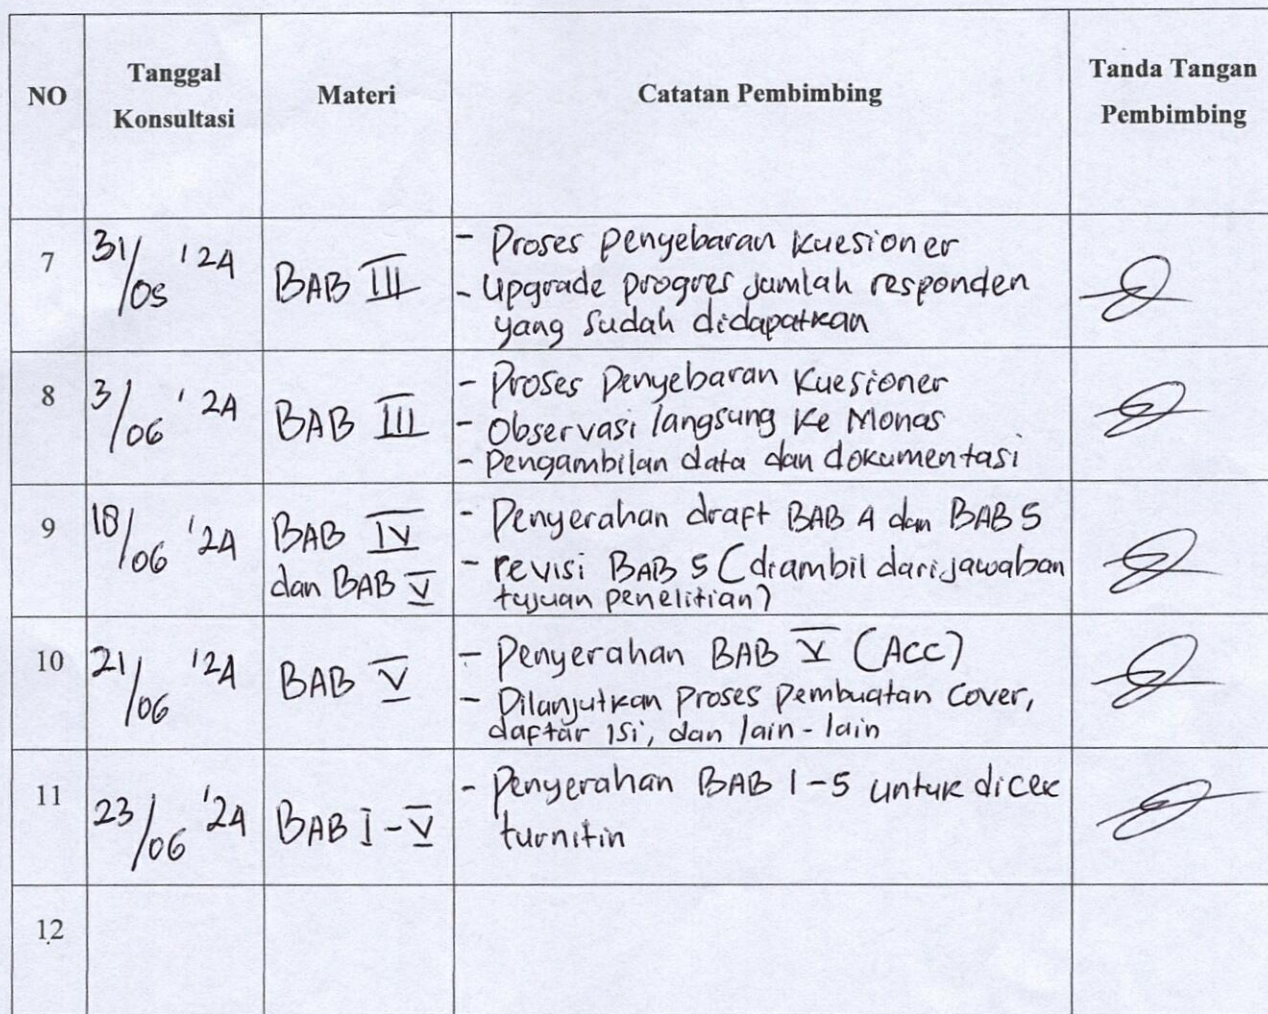 NO
Tanggal Konsultasi
Materi
Catatan Pembimbing
Tanda Tangan Pembimbing
7
31/05 '24
BAB III
- Proses penyebaran kuesioner
- Upgrade progres jumlah responden
yang sudah didapatkan
8
3/06 '24
BAB III
- Proses Penyebaran Kuesioner
- Observasi langsung ke Monas
- Pengambilan data dan dokumentasi
9
18/06 '24
BAB IV
dan BAB V
- Penyerahan draft BAB 4 dan BAB 5
- revisi BAB 5 (diambil dari jawaban
tujuan penelitian)
10
21/06 '24
BAB V
- Penyerahan BAB V (Acc)
- Dilanjutkan proses pembuatan cover,
daftar isi, dan lain-lain
11
23/06 '24
BAB I - V
- Penyerahan BAB 1-5 untuk dicek
turnitin
12